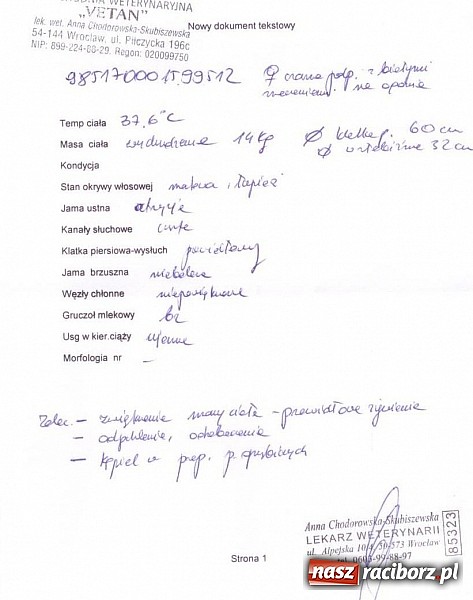 WETERYNARYJNA
„VETAN”
lek. wet. Anna Chodorowska-Skubiszewska
54-144 Wrocław, ul. Pilczycka 196c
NIP: 899-224-88-29. Regon: 020099750
Nowy dokument tekstowy
985170001599512 ♀ czarna podp. z białymi
na
Temp ciała 37,6°C
Masa ciała wychudzenie 14kg Ø klatki p. 60cm
Ø 32cm
Kondycja
Stan okrywy włosowej matowa, łupież
Jama ustna
Kanały słuchowe czyste
Klatka piersiowa-wysłuch prawidłowy
Jama brzuszna niebolesna
Węzły chłonne niepowiększone
Gruczoł mlekowy bz
Usg w kier.ciąży ujemne
Morfologia nr –
Zalec. – zwiększenie masy ciała – prawidłowe żywienie
– odpchlenie, odrobaczenie
– Kąpiel w prep. p. grzybiczych
Anna Chodorowska-Skubiszewska
LEKARZ WETERYNARII
ul. Alpejska 50-573 Wrocław
tel. 0603-99-88-97
85323
Strona 1
nasz raciborz.pl